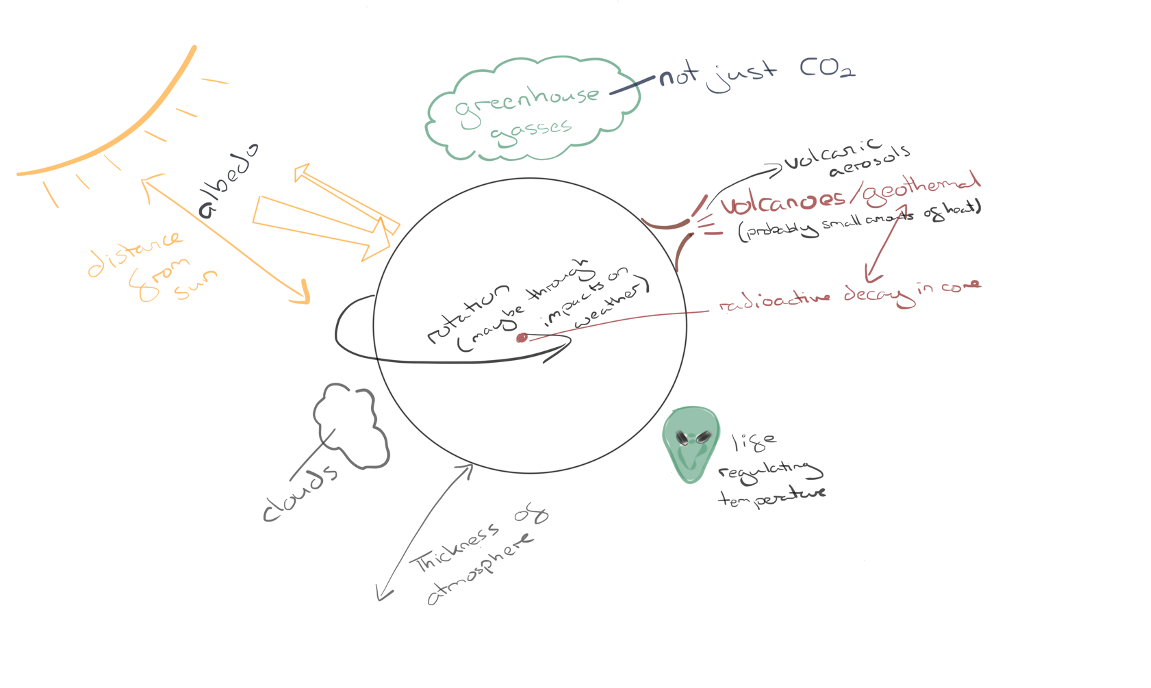 greenhouse
gasses
not just CO2
albedo
distance
from
sun
volcanic
aerosols
volcanoes/geothermal
(probably small amounts of heat)
radioactive decay in core
rotation
(maybe through
impacts on
weather)
clouds
Thickness of
atmosphere
life
regulating
temperature